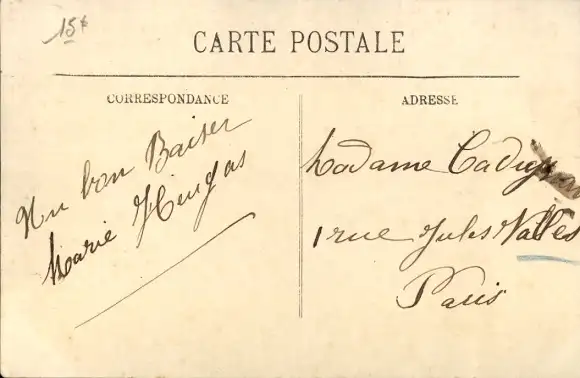 15€
CARTE POSTALE
CORRESPONDANCE
ADRESSE
Un bon Baiser
Marie
Madame
1 rue Jules Vallès
Paris